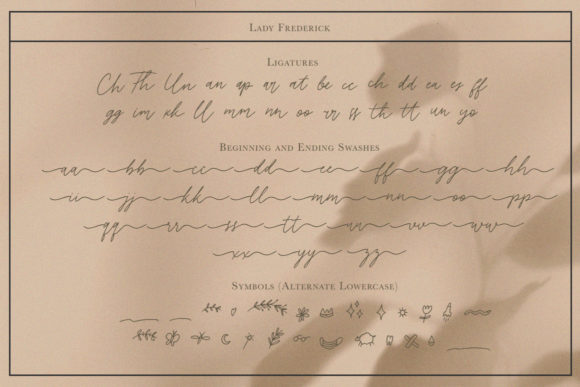 Lady Frederick
Ligatures
Ch Th Un an ap ar at be cc ch dd ea es ff
gg im kh ll mm nn oo rr ss th tt un yo
Beginning and Ending Swashes
aa bb cc dd ee ff gg hh
ii jj kk ll mm nn oo pp
qq rr ss tt uu vv ww
xx yy zz
Symbols (Alternate Lowercase)